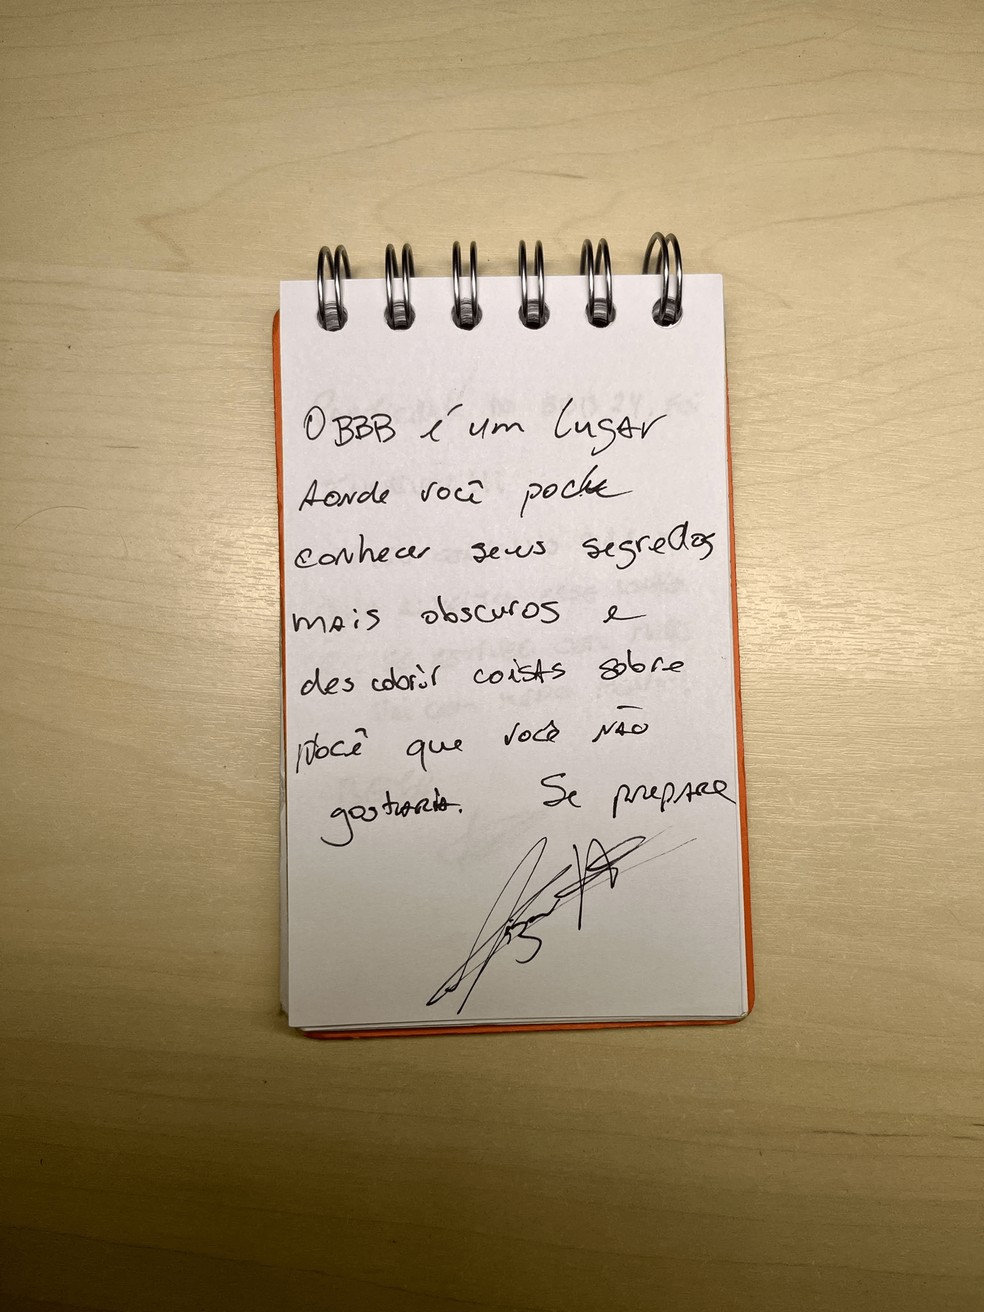 O BBB é um lugar
Aonde você pode
conhecer seus segredos
mais obscuros e
descobrir coisas sobre
você que você não
gostaria. Se prepare